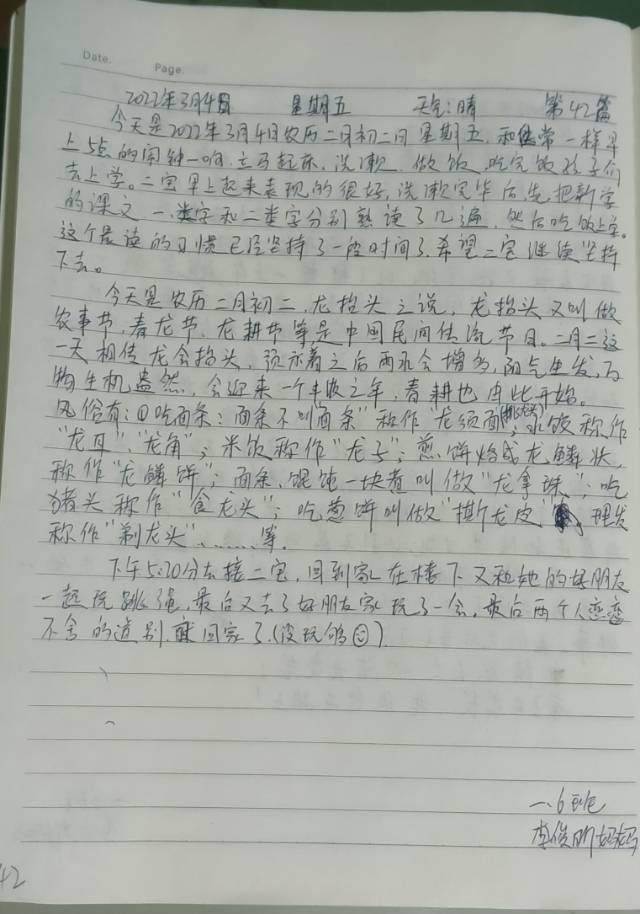 Date.
Page.
2022年3月4日 星期五 天气:晴 第42篇
今天是2022年3月4日农历二月初二日 星期五,和往常一样早
上5点的闹钟一响,立马起床,洗漱,做饭,吃完饭孩子们
去上学。二宝早上起来表现的很好,洗漱完毕后先把新学
的课文 一类字和二类字分别熟读了几遍,然后吃饭上学。
这个晨读的习惯已经坚持了一段时间了,希望二宝继续坚持
下去。
今天是农历二月初二,龙抬头之说,龙抬头又叫做
农事节,春龙节,龙耕节等是中国民间传统节日。二月二这
一天相传龙会抬头,预示着之后雨水会增多,阳气生发,万
物生机盎然,会迎来一个丰收之年,春耕也由此开始。
风俗有:①吃面条:面条不叫"面条"称作"龙须面";水饺称作
"龙耳","龙角";米饭称作"龙子";煎饼烙成龙鳞状,
称作"龙鳞饼";面条,馄饨一块煮叫做"龙拿珠";吃
猪头称作"食龙头";吃葱饼叫做"撕龙皮",理发
称作"剃龙头"、……等。
下午5:20分去接二宝,回到家在楼下又和她的好朋友
一起玩跳绳,最后又去了好朋友家玩了一会,最后两个人恋恋
不舍的道别,就回家了(没玩够☺)
一.6班
李俊明妈妈
42